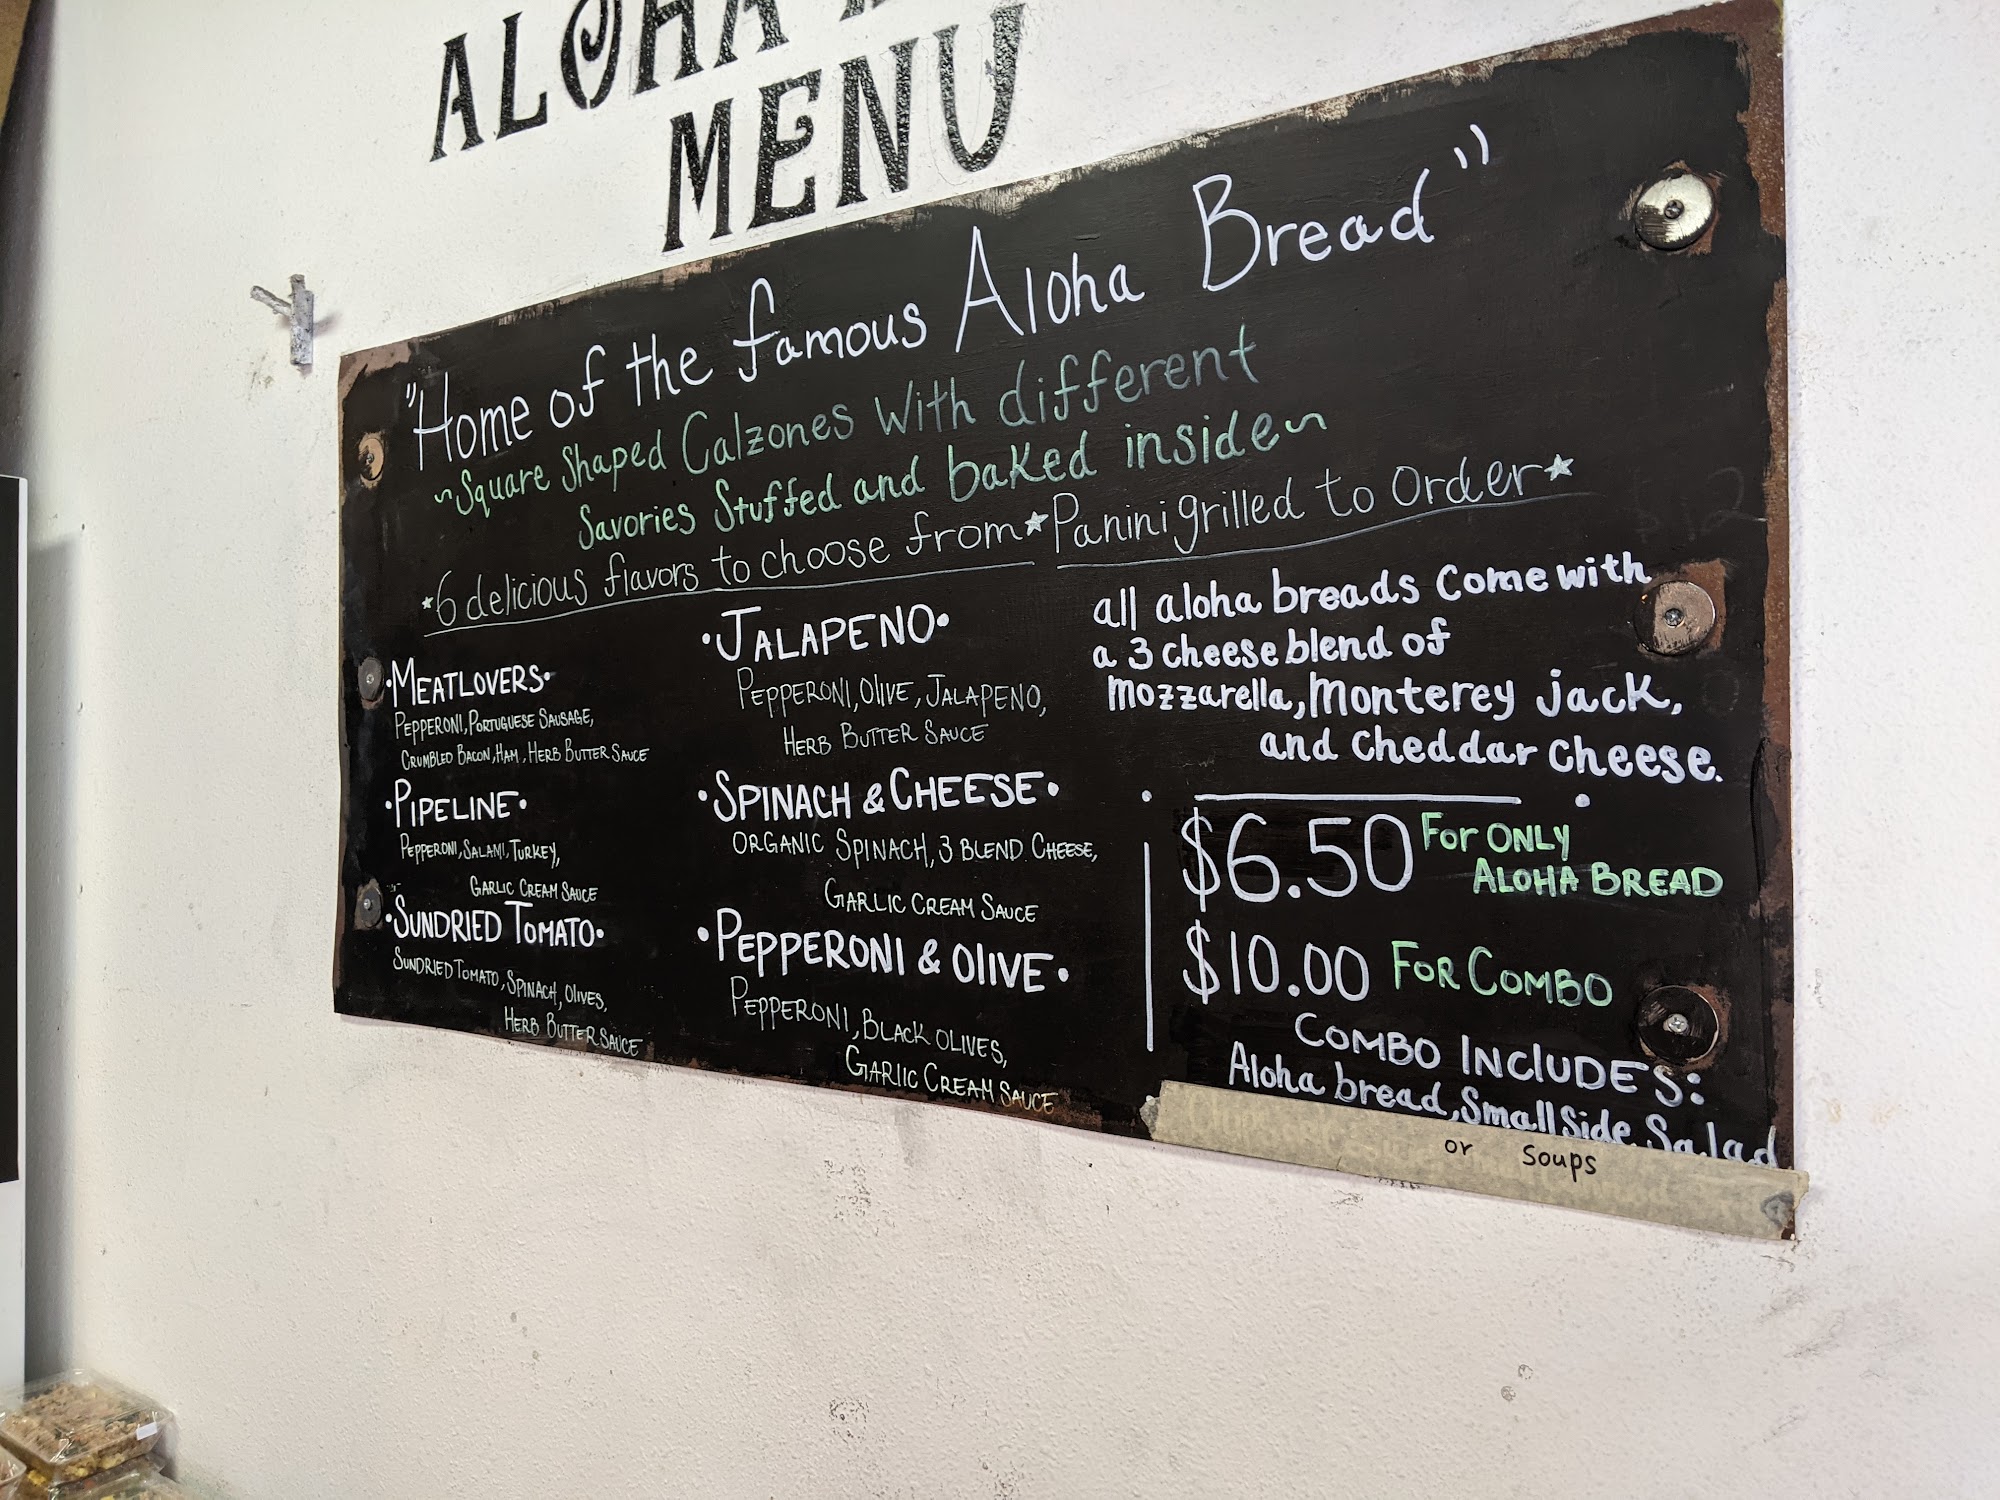 ALOHA
MENU
"Home of the famous Aloha Bread"
~Square Shaped Calzones With different
Savories Stuffed and baked inside~
*6 delicious flavors to choose from*Panini grilled to Order*
•MEATLOVERS•
PEPPERONI, PORTUGUESE SAUSAGE,
CRUMBLED BACON, HAM, HERB BUTTER SAUCE
•PIPELINE•
PEPPERONI, SALAMI, TURKEY,
GARLIC CREAM SAUCE
•SUNDRIED TOMATO•
SUNDRIED TOMATO, SPINACH, OLIVES,
HERB BUTTER SAUCE
•JALAPENO•
PEPPERONI, OlIVE, JALAPENO,
HERB BUTTER SAUCE
•SPINACH & CHEESE•
ORGANIC SPINACH, 3 BLEND CHEESE,
GARLIC CREAM SAUCE
•PEPPERONI & OlIVE•
PEPPERONI, BLACK OLIVES,
GARlIC CREAM SAUCE
all aloha breads come with
a 3 cheese blend of
mozzarella, Monterey jack,
and cheddar cheese.
$6.50 For ONLY
ALOHA BREAD
$10.00 FOR COMBO
COMBO INCLUDES:
Aloha bread, Small Side Salad
or soups